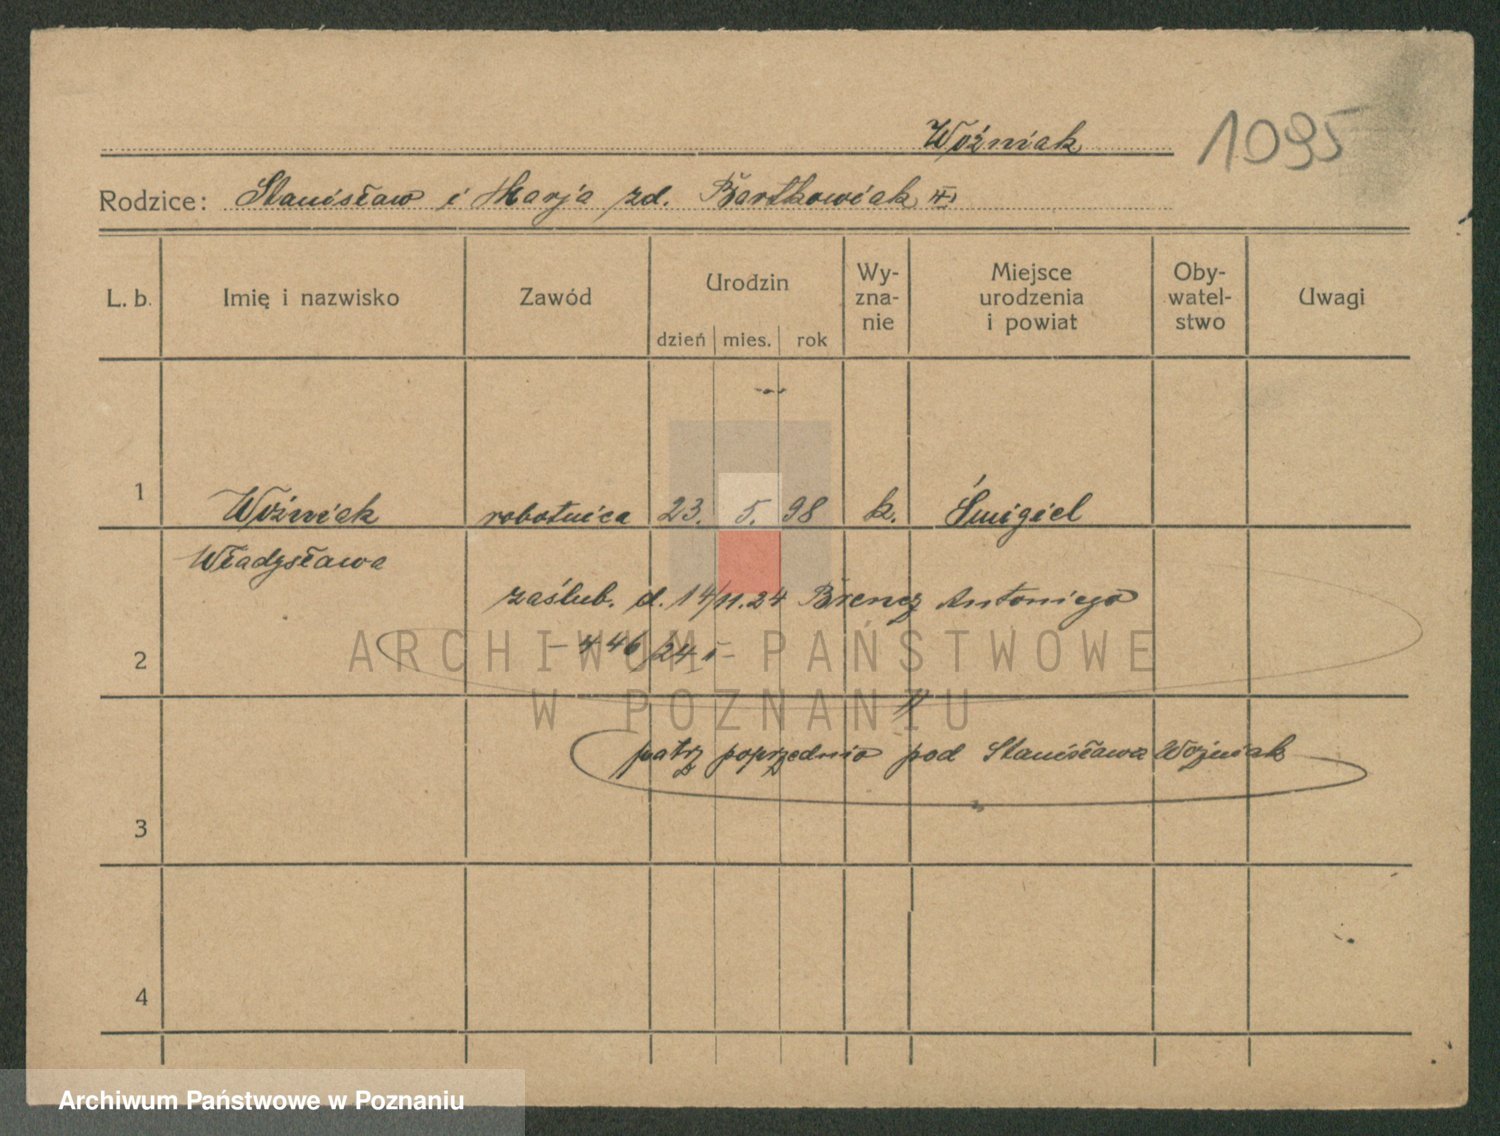 Woźniak
1095
Rodzice: Stanisław i Marja zd. Bartkowiak
L. b. Imię i nazwisko Zawód Urodzin dzień mies. rok Wy-zna-nie Miejsce urodzenia i powiat Oby-watel-stwo Uwagi
1 Woźniak robotnica 23. 5. 98 k. Śmigiel
Władysława
zaślub. d. 14/11.24 Antoniego
2
ARCHIWUM PAŃSTWOWE
W POZNANIU
patrz poprzednio pod Stanisława Woźniak
3
4
Archiwum Państwowe w Poznaniu